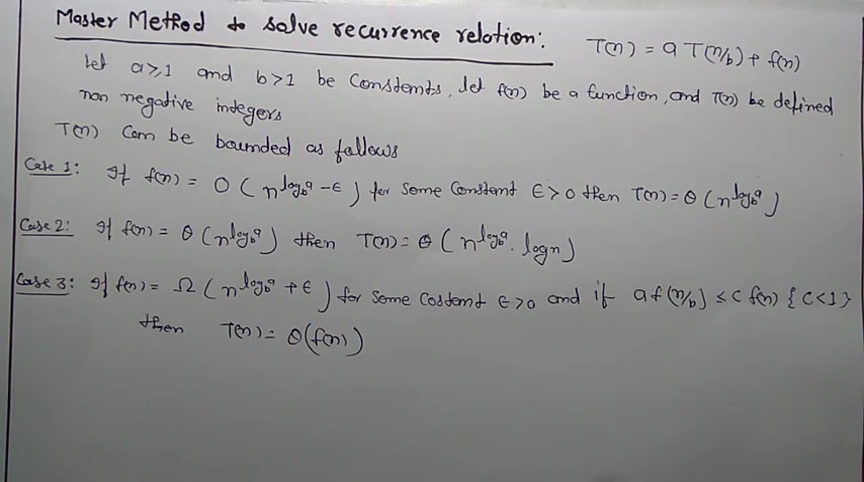 Master Method to solve recurrence relation: T(n) = a T(n/b) + f(n)
let a≥1 and b>1 be Constants, let f(n) be a function, and T(n) be defined
non negative integers
T(n) Can be bounded as follows
Case 1: If f(n) = O(n^{log_b a - ε}) for some Constant ε>0 then T(n) = θ(n^{log_b a})
Case 2: If f(n) = θ(n^{log_b a}) then T(n) = θ(n^{log_b a}. logn)
Case 3: If f(n) = Ω(n^{log_b a + ε}) for some Costant ε>0 and if a f(n/b) ≤ c f(n) {C<1}
then T(n) = θ(f(n))